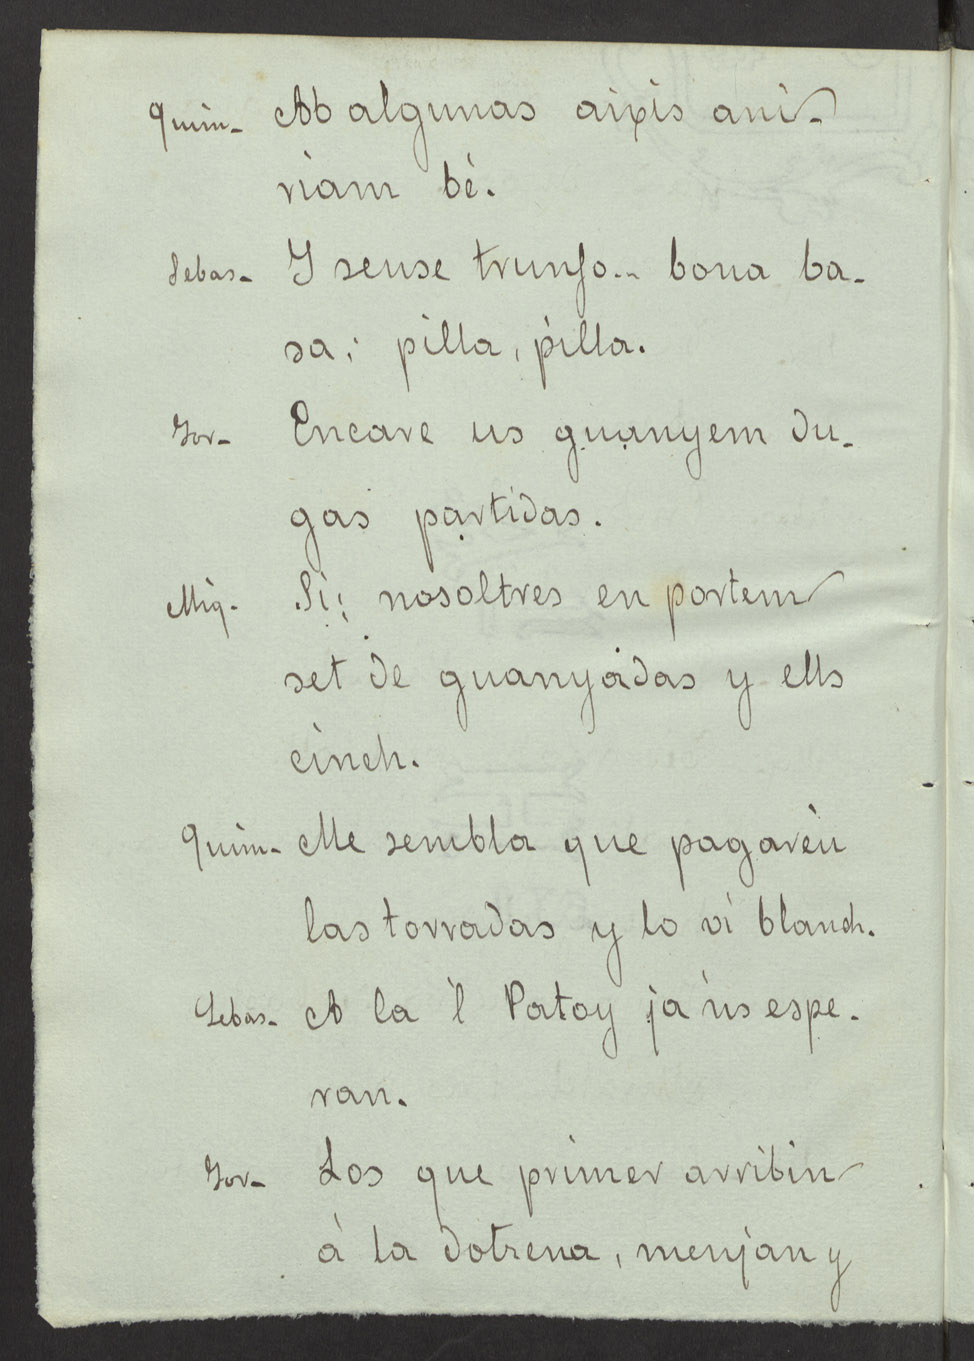 Quim- Ab algunas aixis ani-
riam bé.
Sebas- Y sense trunfo.. bona ba-
sa; pilla, pilla.
Jor- Encare us guanyem du-
gas partidas.
Miq- Si; nosaltres en portem
set de guanyadas y ells
cinch.
Quim- Me sembla que pagaréu
las torradas y lo ví blanch.
Sebas- A la 'l Patoy ja'us espe-
ran.
Jor- Los que primer arribin
á la dotzena, menjan y